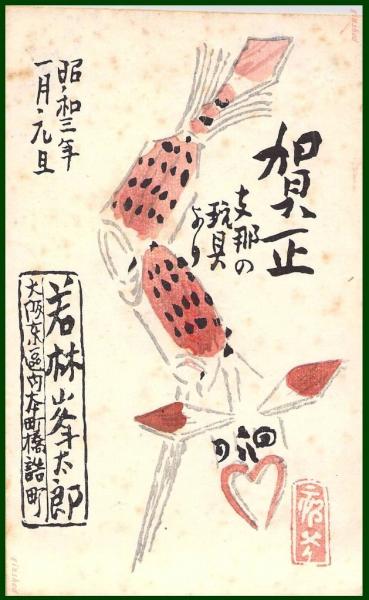 賀正
支那の
玩具
より
昭和三年
一月・元旦
若林峰太郎
大阪東區内本町橋詰町